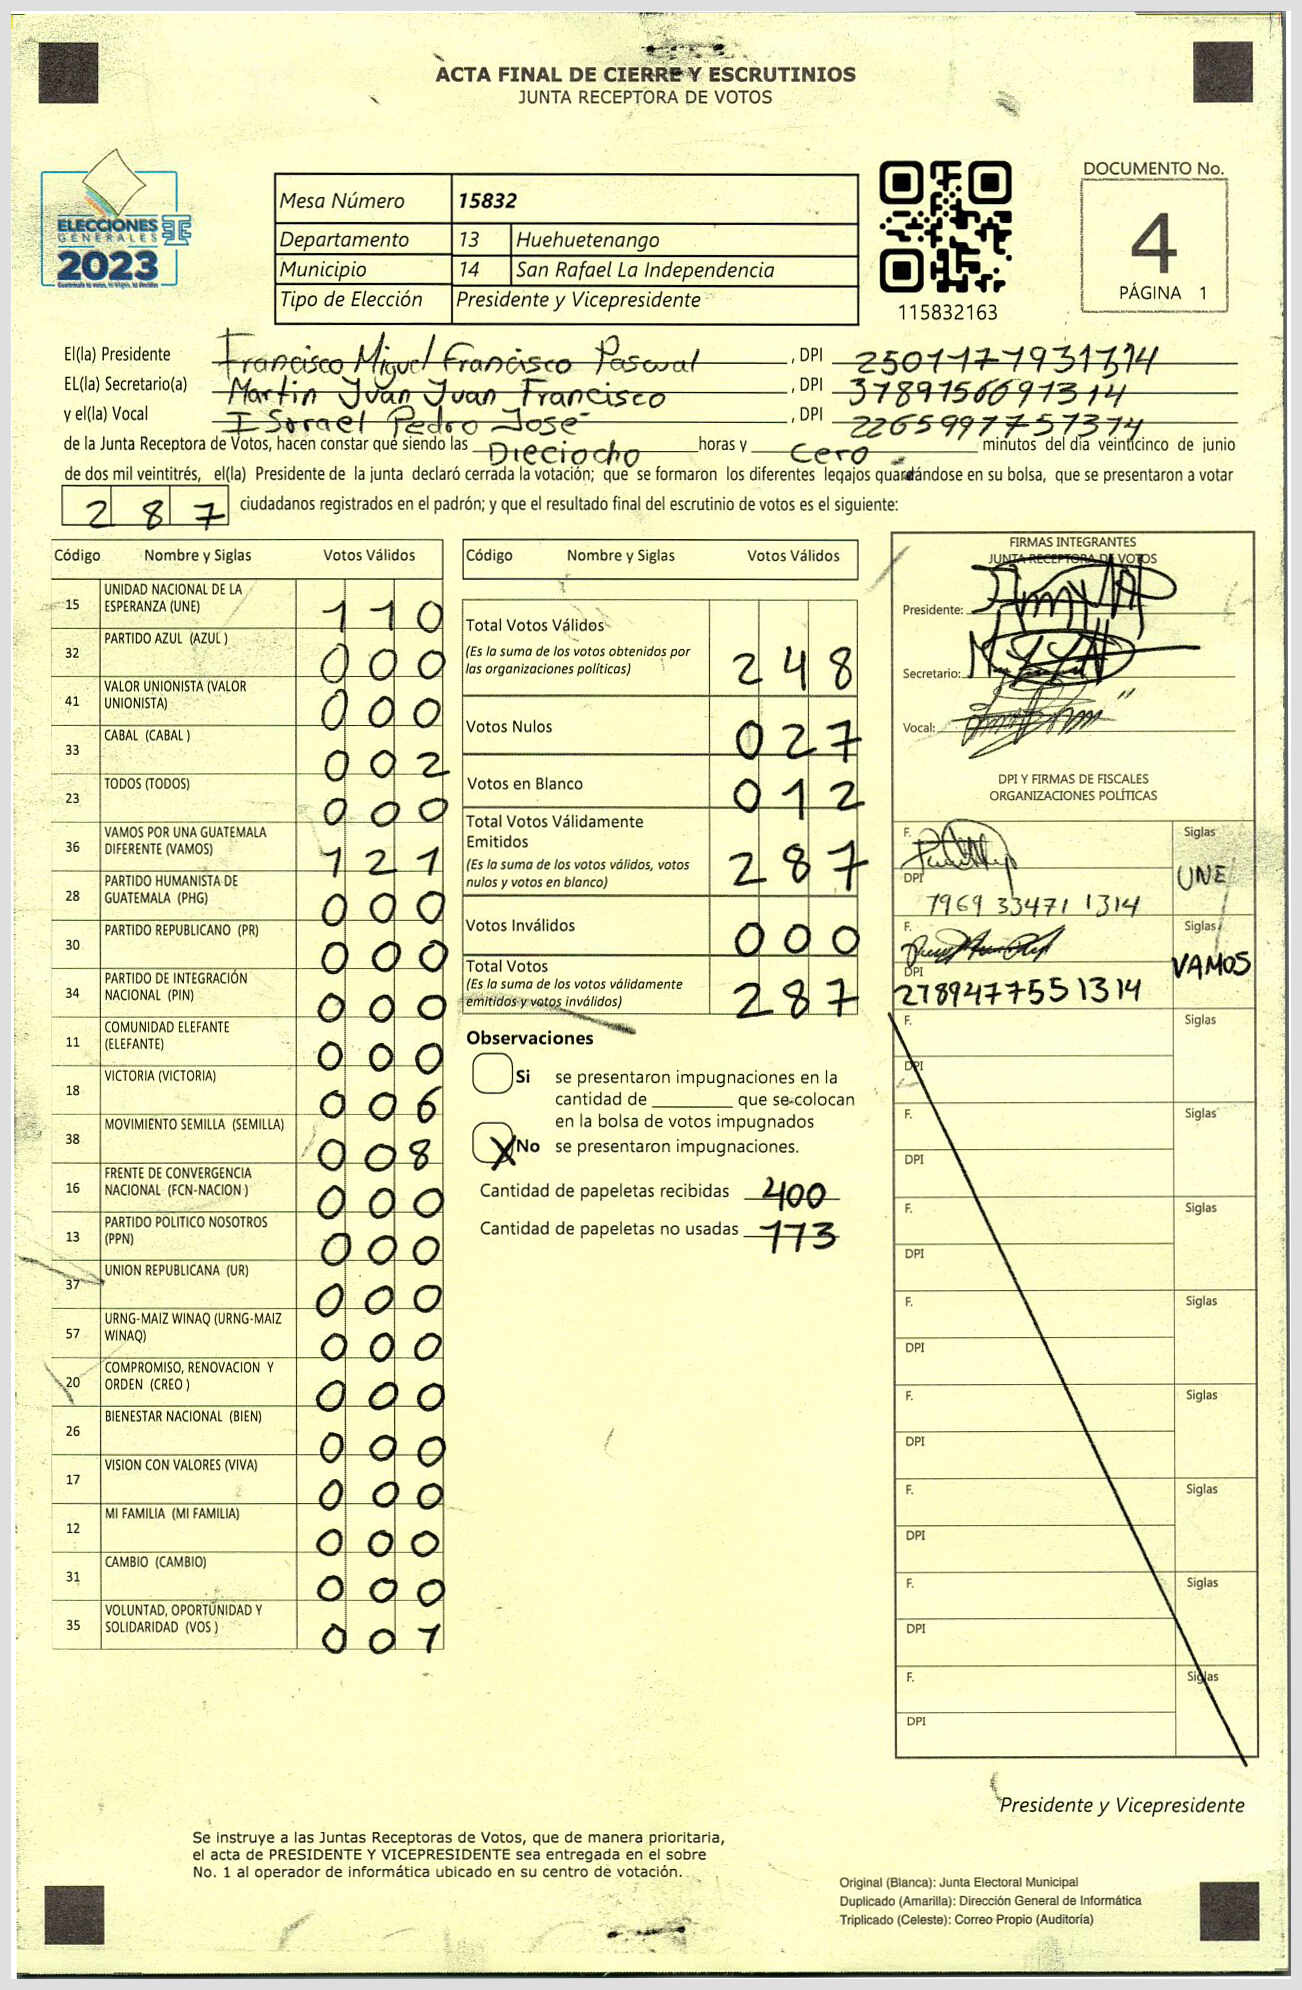 ACTA FINAL DE CIERRE Y ESCRUTINIOS
JUNTA RECEPTORA DE VOTOS
ELECCIONES
GENERALES
2023
Mesa Número 15832
Departamento 13 Huehuetenango
Municipio 14 San Rafael La Independencia
Tipo de Elección Presidente y Vicepresidente
115832163
DOCUMENTO No.
4
PÁGINA 1
El(la) Presidente Francisco Miguel Francisco Pascual , DPI 2501177931314
EL(la) Secretario(a) Martin Juan Juan Francisco , DPI 3789756691314
y el(la) Vocal Isrrael Pedro José , DPI 2265997757314
de la Junta Receptora de Votos, hacen constar que siendo las Dieciocho horas y cero minutos del día veinticinco de junio
de dos mil veintitrés, el(la) Presidente de la junta declaró cerrada la votación; que se formaron los diferentes legajos guardándose en su bolsa, que se presentaron a votar
287 ciudadanos registrados en el padrón; y que el resultado final del escrutinio de votos es el siguiente:
Código Nombre y Siglas Votos Válidos
15 UNIDAD NACIONAL DE LA ESPERANZA (UNE) 110
32 PARTIDO AZUL (AZUL ) 000
41 VALOR UNIONISTA (VALOR UNIONISTA) 000
33 CABAL (CABAL ) 002
23 TODOS (TODOS) 000
36 VAMOS POR UNA GUATEMALA DIFERENTE (VAMOS) 121
28 PARTIDO HUMANISTA DE GUATEMALA (PHG) 000
30 PARTIDO REPUBLICANO (PR) 000
34 PARTIDO DE INTEGRACIÓN NACIONAL (PIN) 000
11 COMUNIDAD ELEFANTE (ELEFANTE) 000
18 VICTORIA (VICTORIA) 006
38 MOVIMIENTO SEMILLA (SEMILLA) 008
16 FRENTE DE CONVERGENCIA NACIONAL (FCN-NACION ) 000
13 PARTIDO POLITICO NOSOTROS (PPN) 000
37 UNION REPUBLICANA (UR) 000
57 URNG-MAIZ WINAQ (URNG-MAIZ WINAQ) 000
20 COMPROMISO, RENOVACION Y ORDEN (CREO ) 000
26 BIENESTAR NACIONAL (BIEN) 000
17 VISION CON VALORES (VIVA) 000
12 MI FAMILIA (MI FAMILIA) 000
31 CAMBIO (CAMBIO) 000
35 VOLUNTAD, OPORTUNIDAD Y SOLIDARIDAD (VOS ) 001
Código Nombre y Siglas Votos Válidos
Total Votos Válidos 248
(Es la suma de los votos obtenidos por
las organizaciones políticas)
Votos Nulos 027
Votos en Blanco 012
Total Votos Válidamente
Emitidos 287
(Es la suma de los votos válidos, votos
nulos y votos en blanco)
Votos Inválidos 000
Total Votos 287
(Es la suma de los votos válidamente
emitidos y votos inválidos)
Observaciones
Si se presentaron impugnaciones en la
cantidad de ________ que se colocan
en la bolsa de votos impugnados
X No se presentaron impugnaciones.
Cantidad de papeletas recibidas 400
Cantidad de papeletas no usadas 113
FIRMAS INTEGRANTES
JUNTA RECEPTORA DE VOTOS
Presidente:
Secretario:
Vocal:
DPI Y FIRMAS DE FISCALES
ORGANIZACIONES POLÍTICAS
F. Siglas
UNE
DPI
1969 33471 1314
F. Siglas
VAMOS
DPI
2789477551314
F. Siglas
DPI
F. Siglas
DPI
F. Siglas
DPI
F. Siglas
DPI
F. Siglas
DPI
F. Siglas
DPI
F. Siglas
DPI
F. Siglas
DPI
Presidente y Vicepresidente
Se instruye a las Juntas Receptoras de Votos, que de manera prioritaria,
el acta de PRESIDENTE Y VICEPRESIDENTE sea entregada en el sobre
No. 1 al operador de informática ubicado en su centro de votación.
Original (Blanca): Junta Electoral Municipal
Duplicado (Amarilla): Dirección General de Informática
Triplicado (Celeste): Correo Propio (Auditoría)